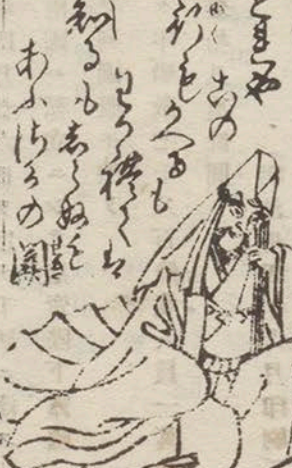 これや
この
行もかへるも
わか禮ては
知るも志らぬも
あふさかの關